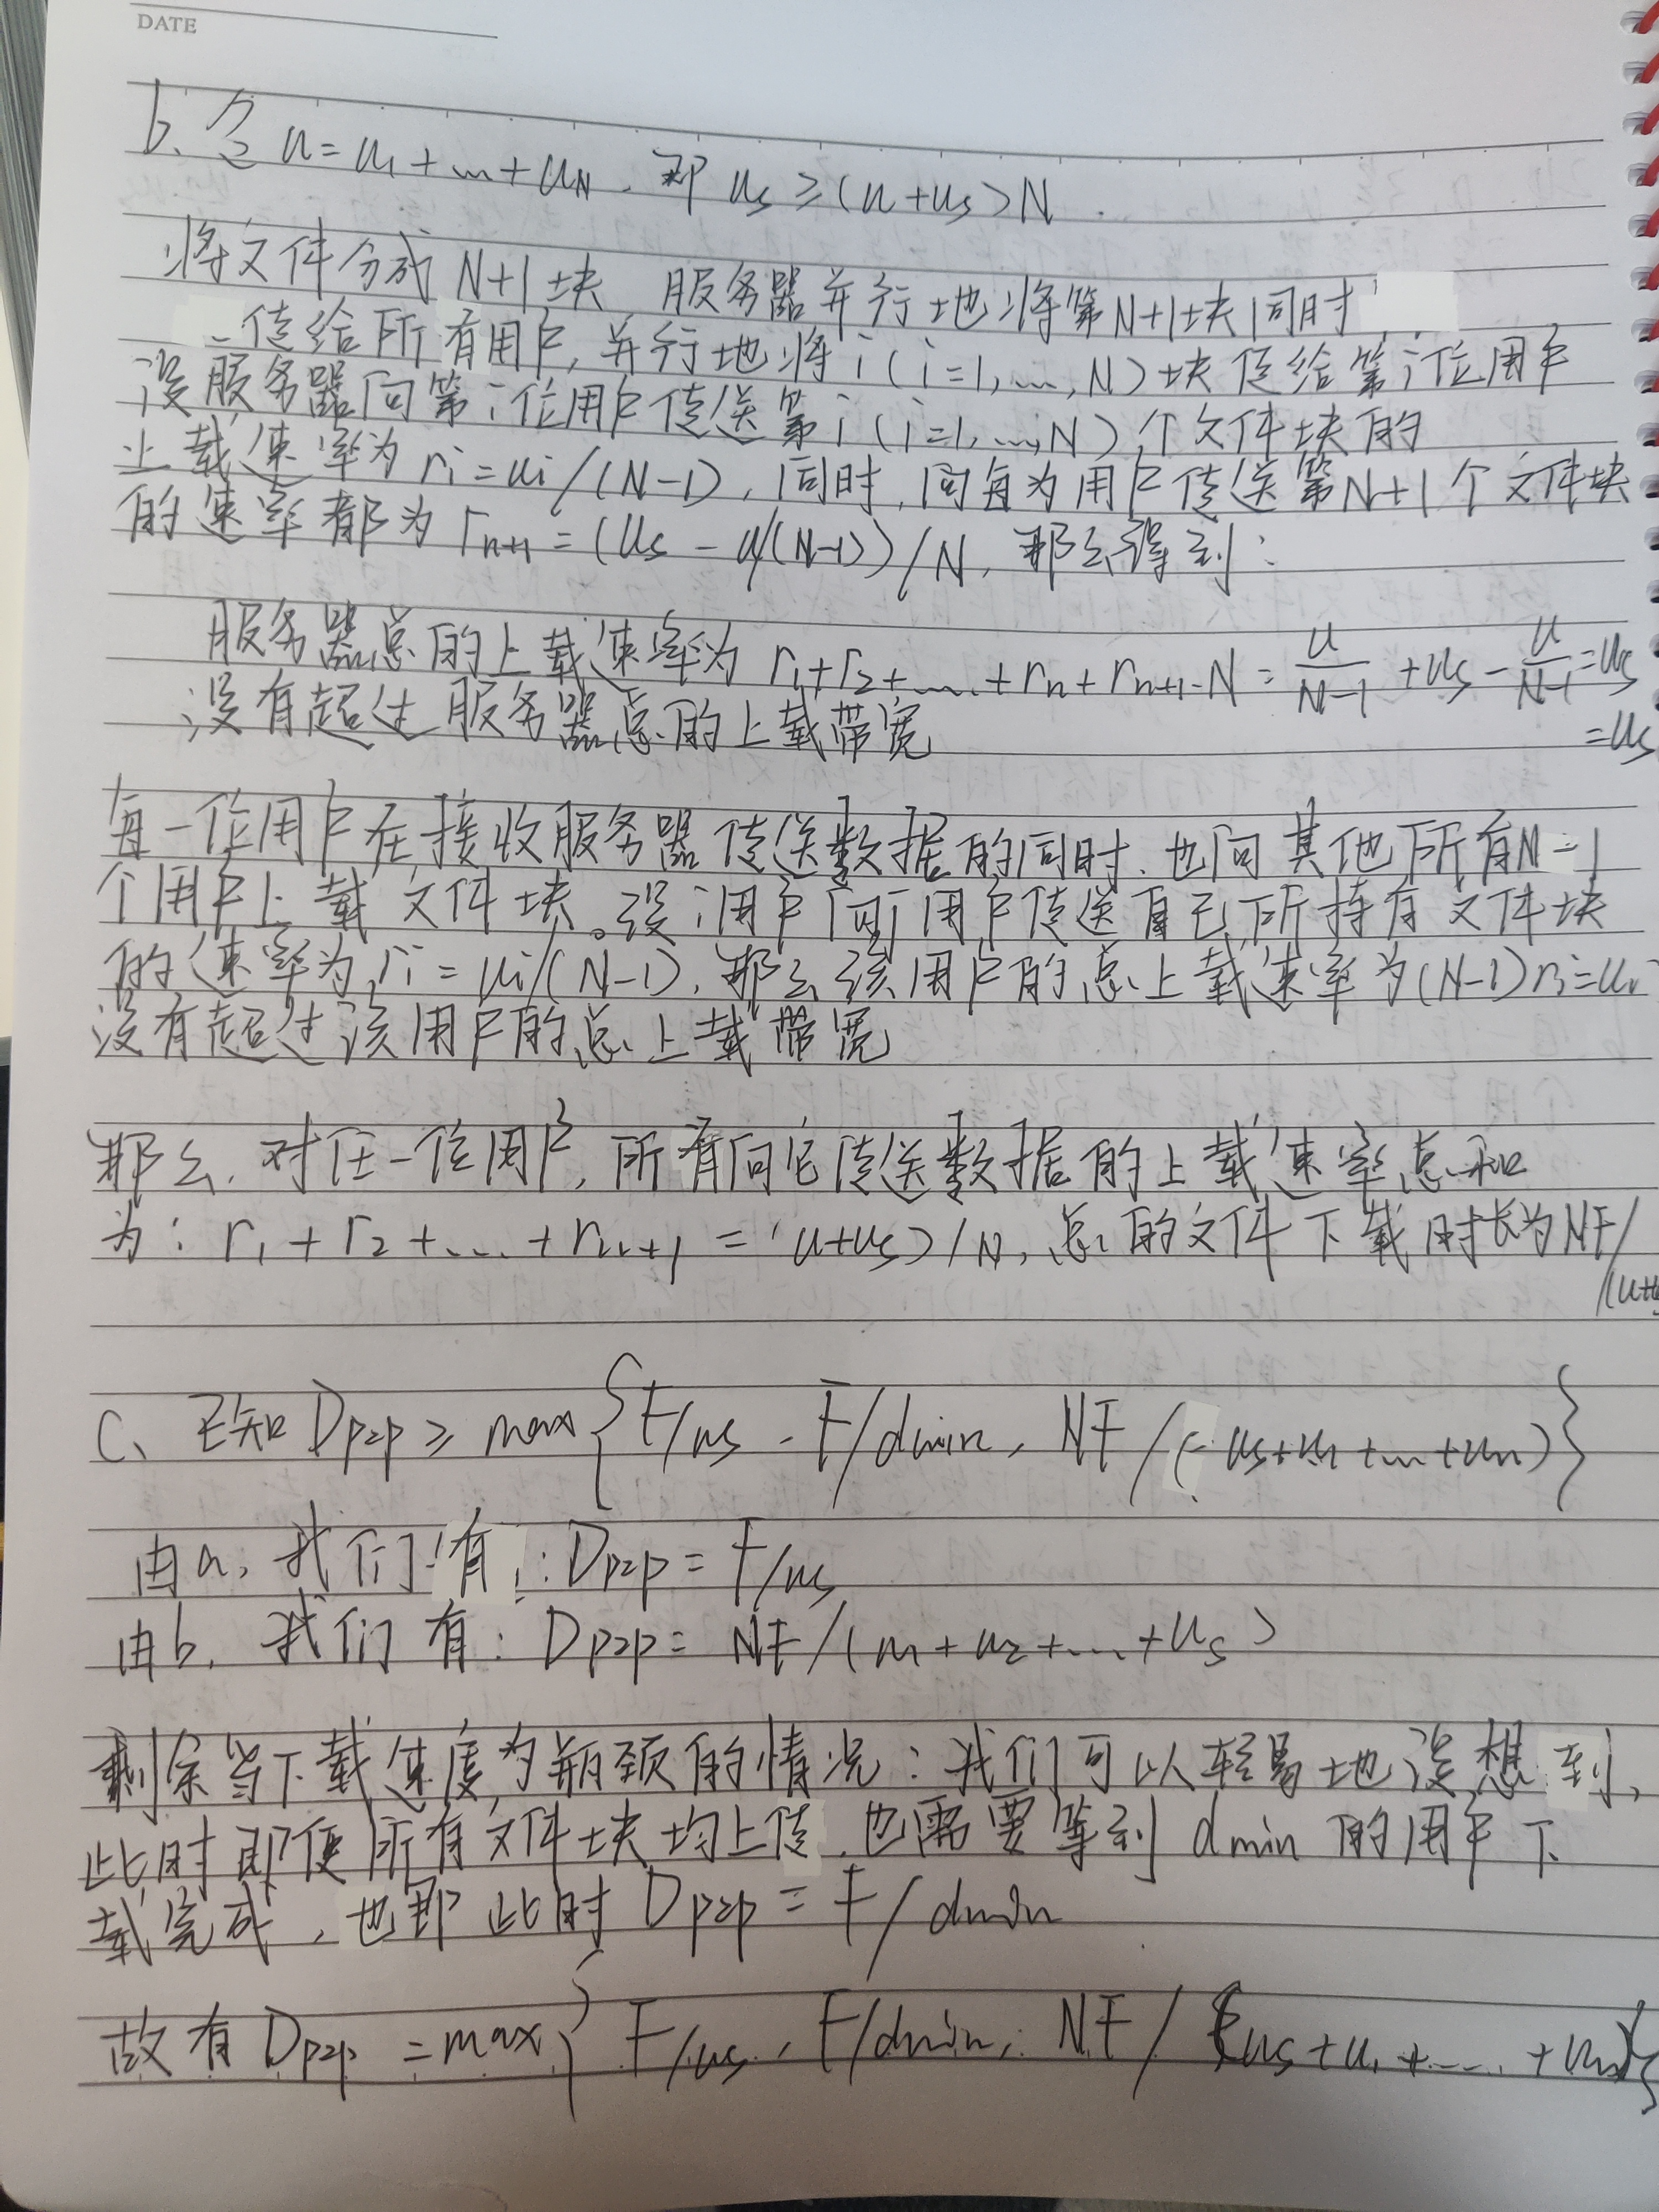 DATE
b、令 u = u₁ + … + uN. 那 us ≥ (u + us) N.
将文件分成 N+1块 服务器并行地将第N+1块同时
传给所有用户, 并行地将 i (i=1, …, N) 块传给第i位用户
设服务器向第i位用户传送第i (i=1, …, N) 个文件块的
上载速率为 ri = ui / (N-1), 同时, 向每为用户传送第N+1个文件块
的速率都为 rn+1 = (us - u/(N-1)) / N, 那么得到:
服务器总的上载速率为 r₁ + r₂ + …. + rn + rn+1·N = u/(N-1) + us - u/(N-1) = us
= us
没有超过服务器总的上载带宽
每一位用户在接收服务器传送数据的同时. 也向其他所有N-1
个用户上载文件块。设i用户向j用户传送自己所持有文件块
的速率为 ri = ui/(N-1), 那么该用户的总上载速率为(N-1)ri = ui
没有超过该用户的总上载带宽
那么. 对任一位用户, 所有向它传送数据的上载速率总和
为: r₁ + r₂ + …. + rn+1 = (u+us) / N, 总的文件下载时长为NF/
(u+us
C、已知 Dp2p ≥ max { F/us, F/dmin, NF / (us + u₁ + … + un) }
由a, 我们有: Dp2p = F/us
由b, 我们有: Dp2p = NF / (u₁ + u₂ + …. + us)
剩余当下载速度为瓶颈的情况: 我们可以轻易地设想到,
此时即便所有文件块均上传, 也需要等到 dmin 的用户下
载完成, 也即此时 Dp2p = F / dmin
故有 Dp2p = max { F/us, F/dmin, NF / (us + u₁ + …. + un) }